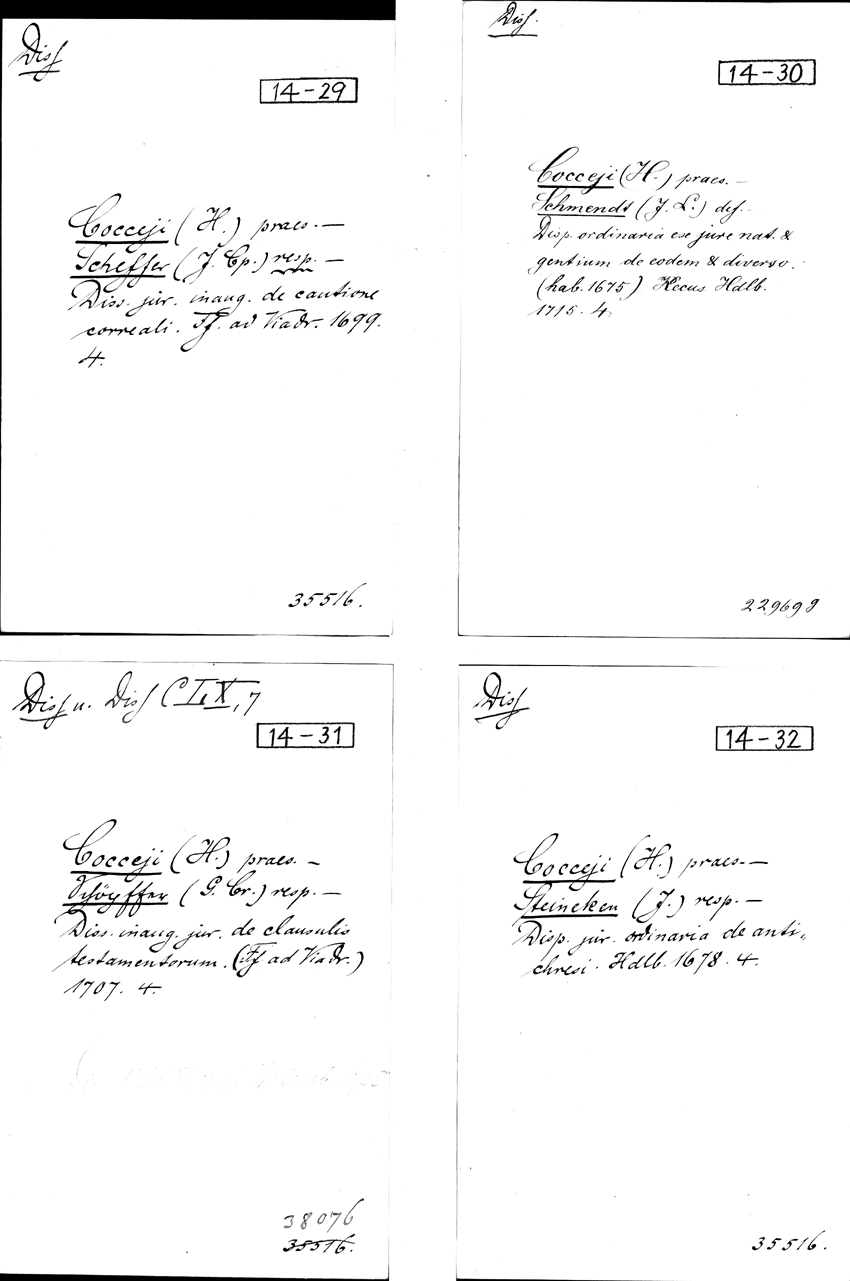 Diss
14-29
Cocceji (H.) praes. —
Scheffer (J. Cp.) resp. —
Diss. jur. inaug. de cautione
correali. Ff. ad Viadr. 1699.
4.
35516.
Diss.
14-30
Cocceji (H.) praes. —
Schmendt (J. L.) def. —
Disp. ordinaria ese jure nat. &
gentium de eodem & diverso.
(hab. 1675) Recus Hdlb.
1715. 4.
229699
Diss u. Diss C I, X, 7
14-31
Cocceji (H.) praes. —
Schöpffer (G. Cr.) resp. —
Diss. inaug. jur. de clausulis
testamentorum. (Ff ad Viadr.)
1707. 4.
38076
35516.
Diss
14-32
Cocceji (H.) praes. —
Steineken (J.) resp. —
Disp. jur. ordinaria de anti-
chresi. Hdlb. 1678. 4.
35516.